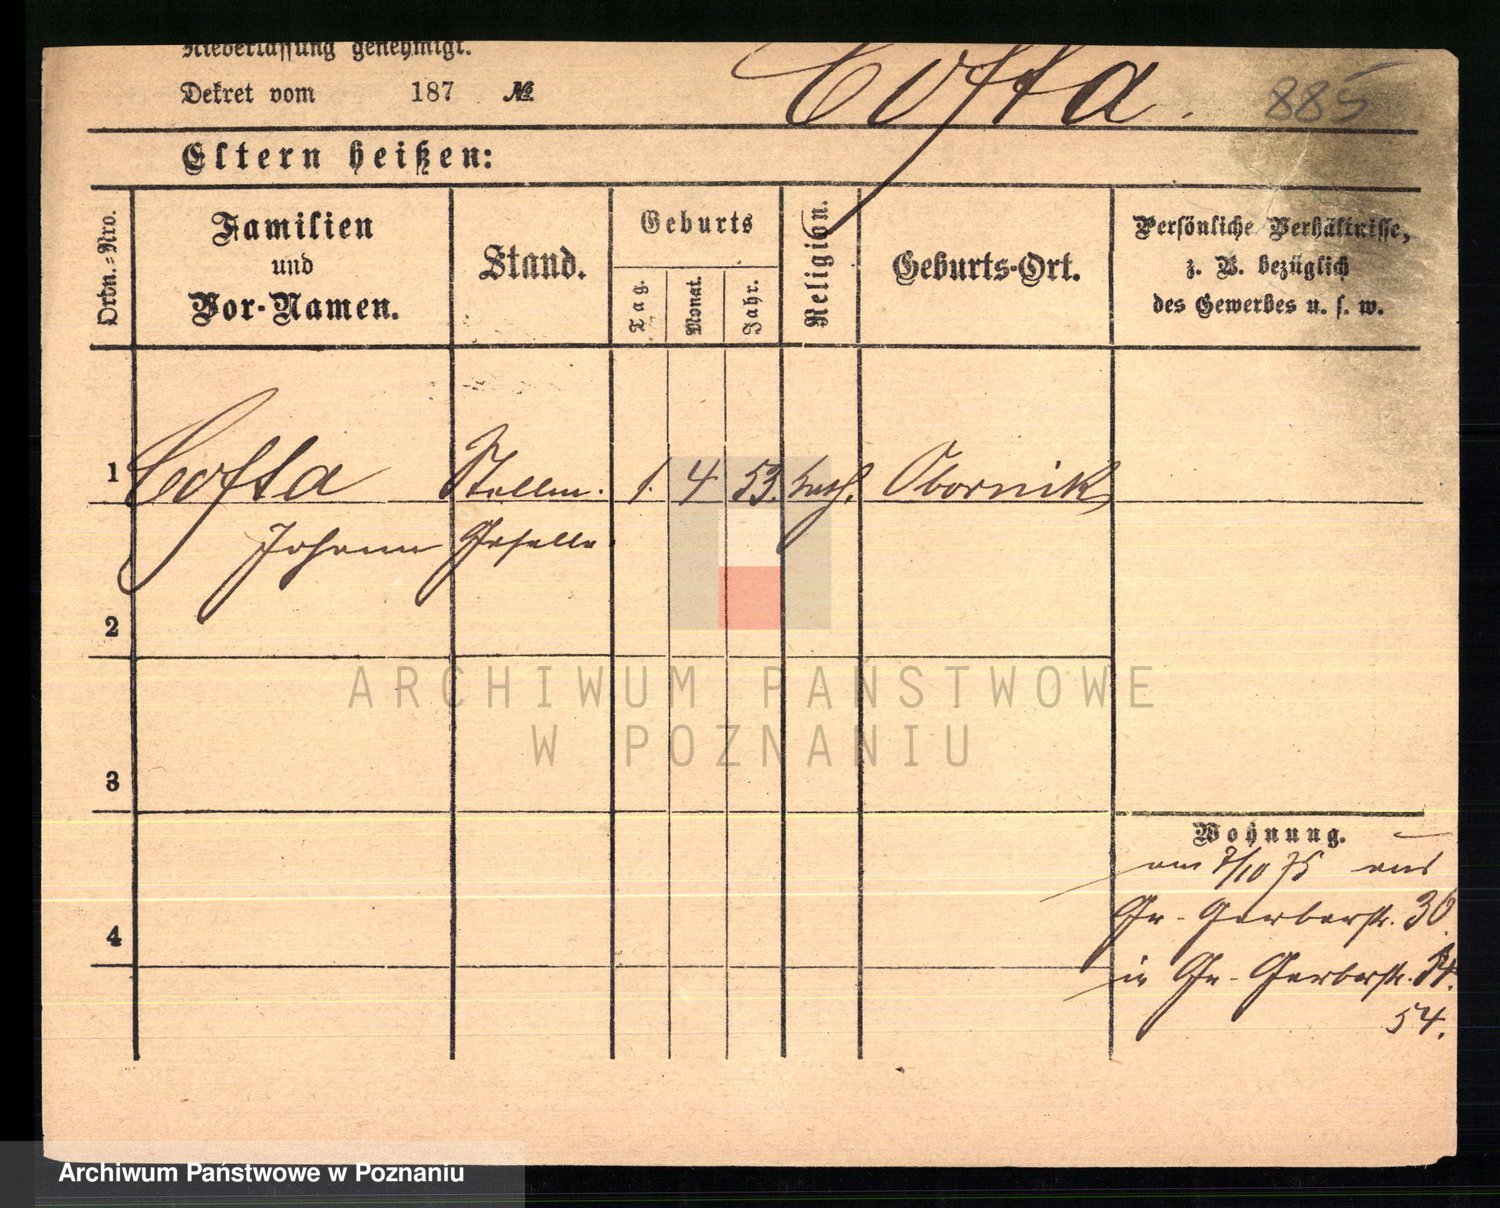 Niederlassung genehmigt.
Dekret vom 187 №
Cofta. 885
Eltern heißen:
Ordn.-Nro.
Familien
und
Vor-Namen.
Stand.
Geburts
Tag.
Monat.
Jahr.
Religion.
Geburts-Ort.
Persönliche Verhältnisse,
z. B. bezüglich
des Gewerbes u. s. w.
1 Cofta Stellm. 1. 4 53. kath. Obornik
Johann Geselle.
2
3
4
Wohnung.
am 7/10 75 aus
Gr. Gerberstr. 36.
in Gr. Gerberstr.
54.
ARCHIWUM PAŃSTWOWE
W POZNANIU
Archiwum Państwowe w Poznaniu